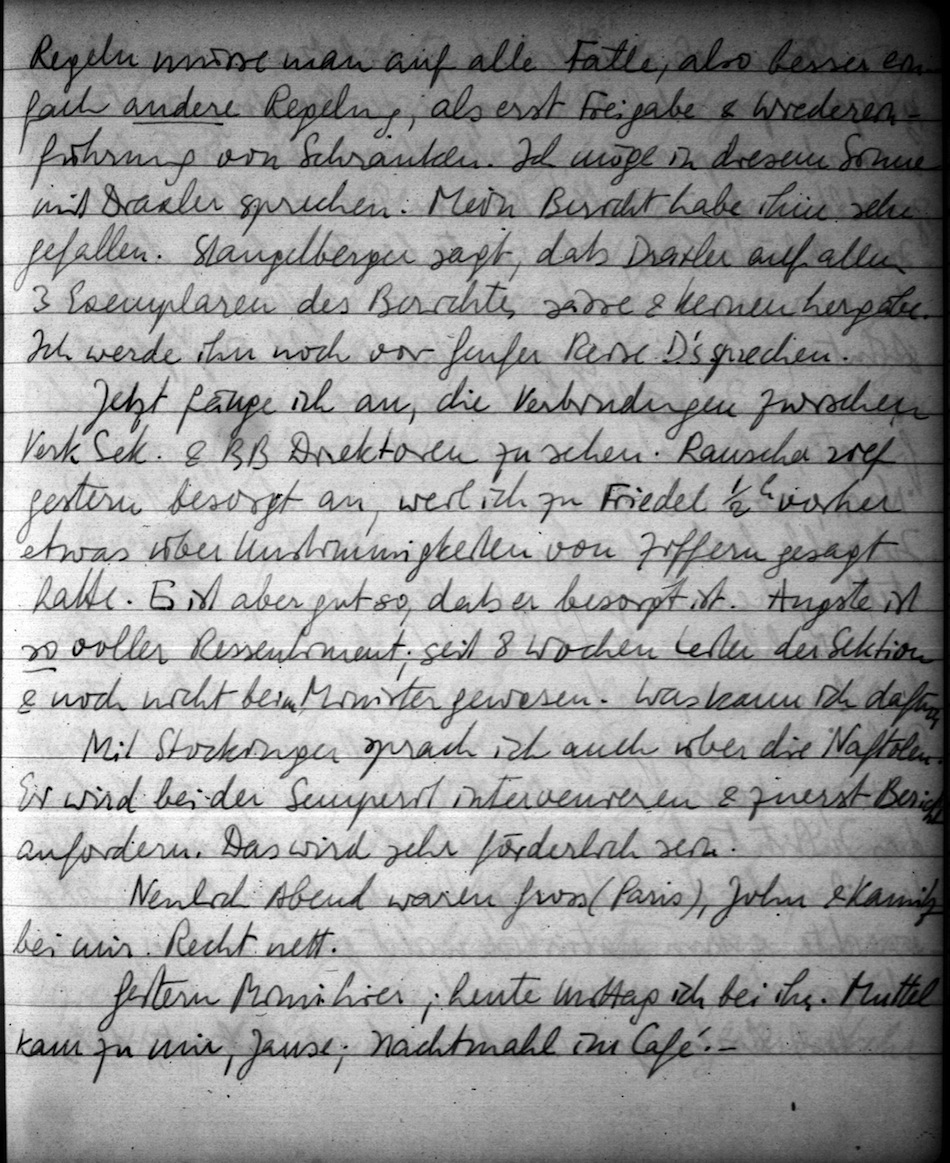 Regeln müsse man auf alle Fälle, also besser ein-
fach andere Regelung, als erst Freigabe & Wiederein-
führung von Schranken. Ich möge in diesem Sinne
mit Draxler sprechen. Mein Bericht habe ihm sehr
gefallen. Stangelberger sagt, dass Draxler auf allen
3 Exemplaren des Berichtes sässe & keinen hergäbe.
Ich werde ihn noch vor Genfer Reise D's sprechen.
Jetzt fange ich an, die Verbindungen zwischen
Verk Sek. & BB Direktoren zu sehen. Rauscha rief
gestern besorgt an, weil ich zu Friedel ½ h vorher
etwas über Unstimmigkeiten von Ziffern gesagt
hatte. Es ist aber gut so, dass er besorgt ist. Angste ist
so voller Ressentiment; seit 8 Wochen Leiter der Sektion
& noch nicht beim Minister gewesen. Was kann ich dafür,
Mit Stockinger sprach ich auch über die Naftolen.
Er wird bei der Semperit intervenieren & zuerst Bericht
anfordern. Das wird sehr förderlich sein.
Neulich Abend waren Gross (Paris), John & Kamitz
bei mir. Recht nett.
Gestern hier; heute Mittag ich bei ihr. Muttel
kam zu mir, Jause; Nachtmahl im Café.–